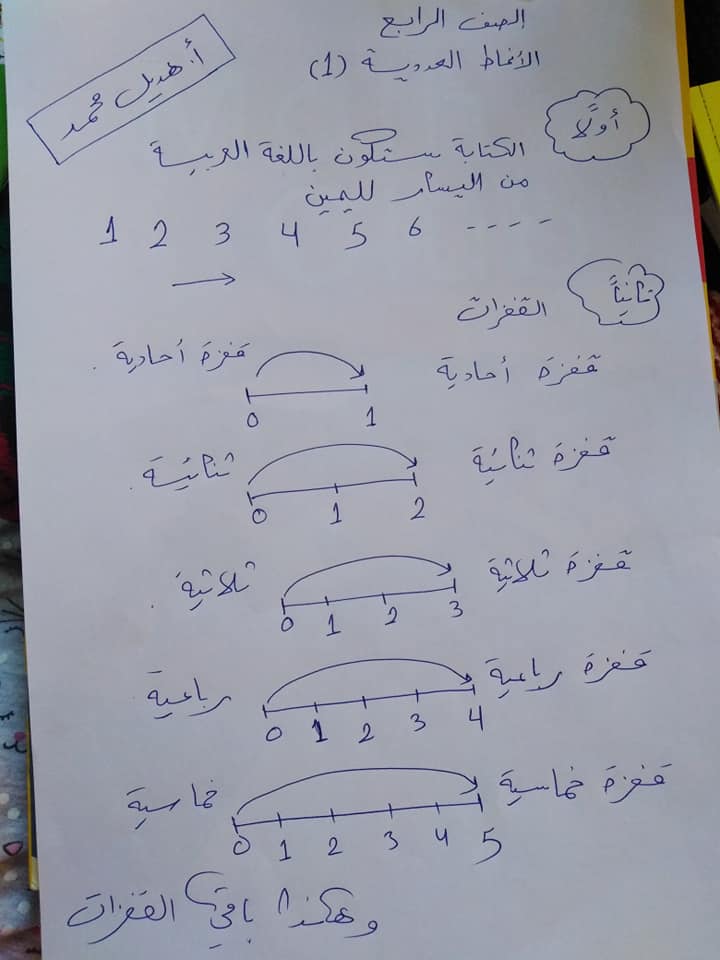 الصف الرابع
الأنماط العددية (1)
أ. هديل محمد
أولًا
الكتابة ستكون باللغة العربية
من اليسار لليمين
1 2 3 4 5 6 ----
ثانيًا
القفزات
قفزة أحادية
0 1
قفزة أحادية.
قفزة ثنائية
0 1 2
ثنائية.
قفزة ثلاثية
0 1 2 3
ثلاثية.
قفزة رباعية
0 1 2 3 4
رباعية
قفزة خماسية
0 1 2 3 4 5
خماسية
وهكذا باقي القفزات